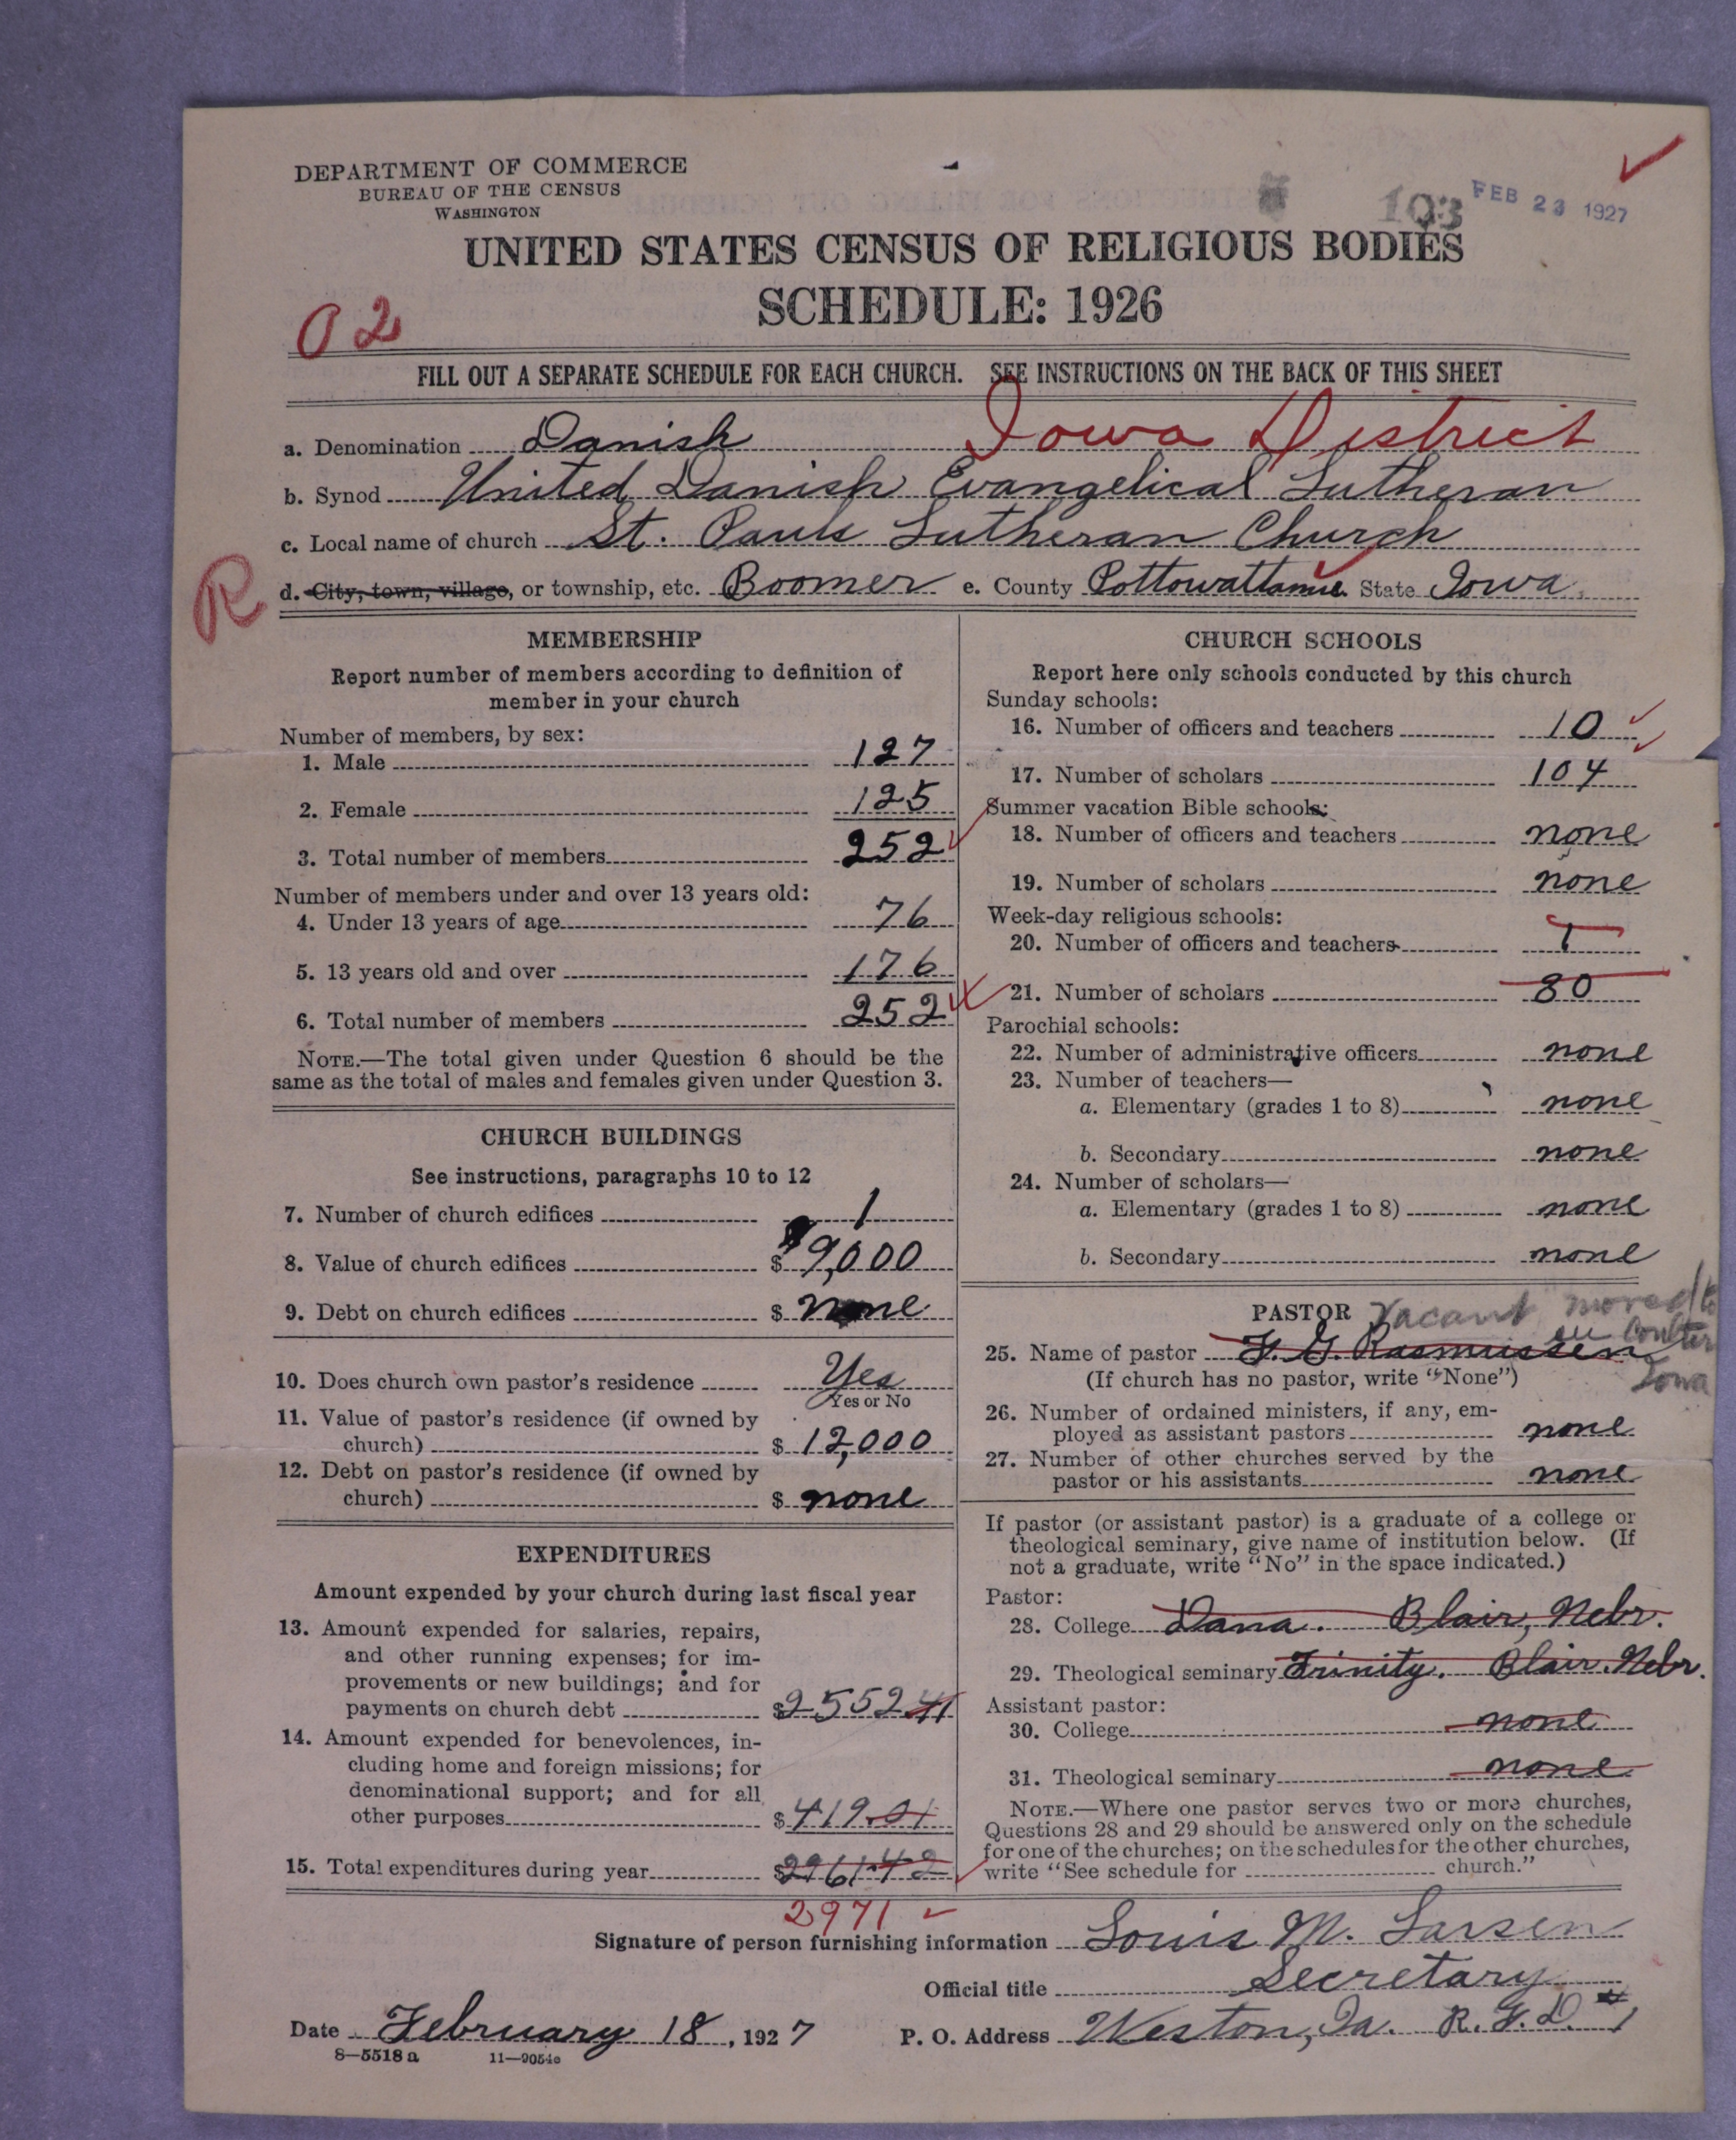 DEPARTMENT OF COMMERCE
BUREAU OF THE CENSUS
WASHINGTON
103 FEB 23 1927
UNITED STATES CENSUS OF RELIGIOUS BODIES
SCHEDULE: 1926
02
FILL OUT A SEPARATE SCHEDULE FOR EACH CHURCH. SEE INSTRUCTIONS ON THE BACK OF THIS SHEET
a. Denomination Danish Iowa District
b. Synod United Danish Evangelical Lutheran
c. Local name of church St. Pauls Lutheran Church
R
d. City, town, village, or township, etc. Boomer e. County Pottowattamie State Iowa.
MEMBERSHIP
Report number of members according to definition of
member in your church
Number of members, by sex:
1. Male 127
2. Female 125
3. Total number of members 252
Number of members under and over 13 years old:
4. Under 13 years of age 76
5. 13 years old and over 176
6. Total number of members 252
NOTE.—The total given under Question 6 should be the
same as the total of males and females given under Question 3.
CHURCH BUILDINGS
See instructions, paragraphs 10 to 12
7. Number of church edifices 1
8. Value of church edifices $ 9,000
9. Debt on church edifices $ none
10. Does church own pastor's residence Yes
Yes or No
11. Value of pastor's residence (if owned by
church) $ 12,000
12. Debt on pastor's residence (if owned by
church) $ none
EXPENDITURES
Amount expended by your church during last fiscal year
13. Amount expended for salaries, repairs,
and other running expenses; for im-
provements or new buildings; and for
payments on church debt $2552.41
14. Amount expended for benevolences, in-
cluding home and foreign missions; for
denominational support; and for all
other purposes $419.01
15. Total expenditures during year $2961.42
2971
CHURCH SCHOOLS
Report here only schools conducted by this church
Sunday schools:
16. Number of officers and teachers 10
17. Number of scholars 104
Summer vacation Bible schools:
18. Number of officers and teachers none
19. Number of scholars none
Week-day religious schools:
20. Number of officers and teachers 1
21. Number of scholars 80
Parochial schools:
22. Number of administrative officers none
23. Number of teachers—
a. Elementary (grades 1 to 8) none
b. Secondary none
24. Number of scholars—
a. Elementary (grades 1 to 8) none
b. Secondary none
PASTOR Vacant moved to
Coulter
Iowa
25. Name of pastor F. G. Rasmussen
(If church has no pastor, write "None")
26. Number of ordained ministers, if any, em-
ployed as assistant pastors none
27. Number of other churches served by the
pastor or his assistants none
If pastor (or assistant pastor) is a graduate of a college or
theological seminary, give name of institution below. (If
not a graduate, write "No" in the space indicated.)
Pastor:
28. College Dana. Blair, Nebr.
29. Theological seminary Trinity. Blair. Nebr.
Assistant pastor:
30. College none
31. Theological seminary none
NOTE.—Where one pastor serves two or more churches,
Questions 28 and 29 should be answered only on the schedule
for one of the churches; on the schedules for the other churches,
write "See schedule for church."
Signature of person furnishing information Louis M. Larsen
Official title Secretary
Date February 18, 1927 P. O. Address Weston, Ia. R.F.D. #1
8—5518 a 11—9054c